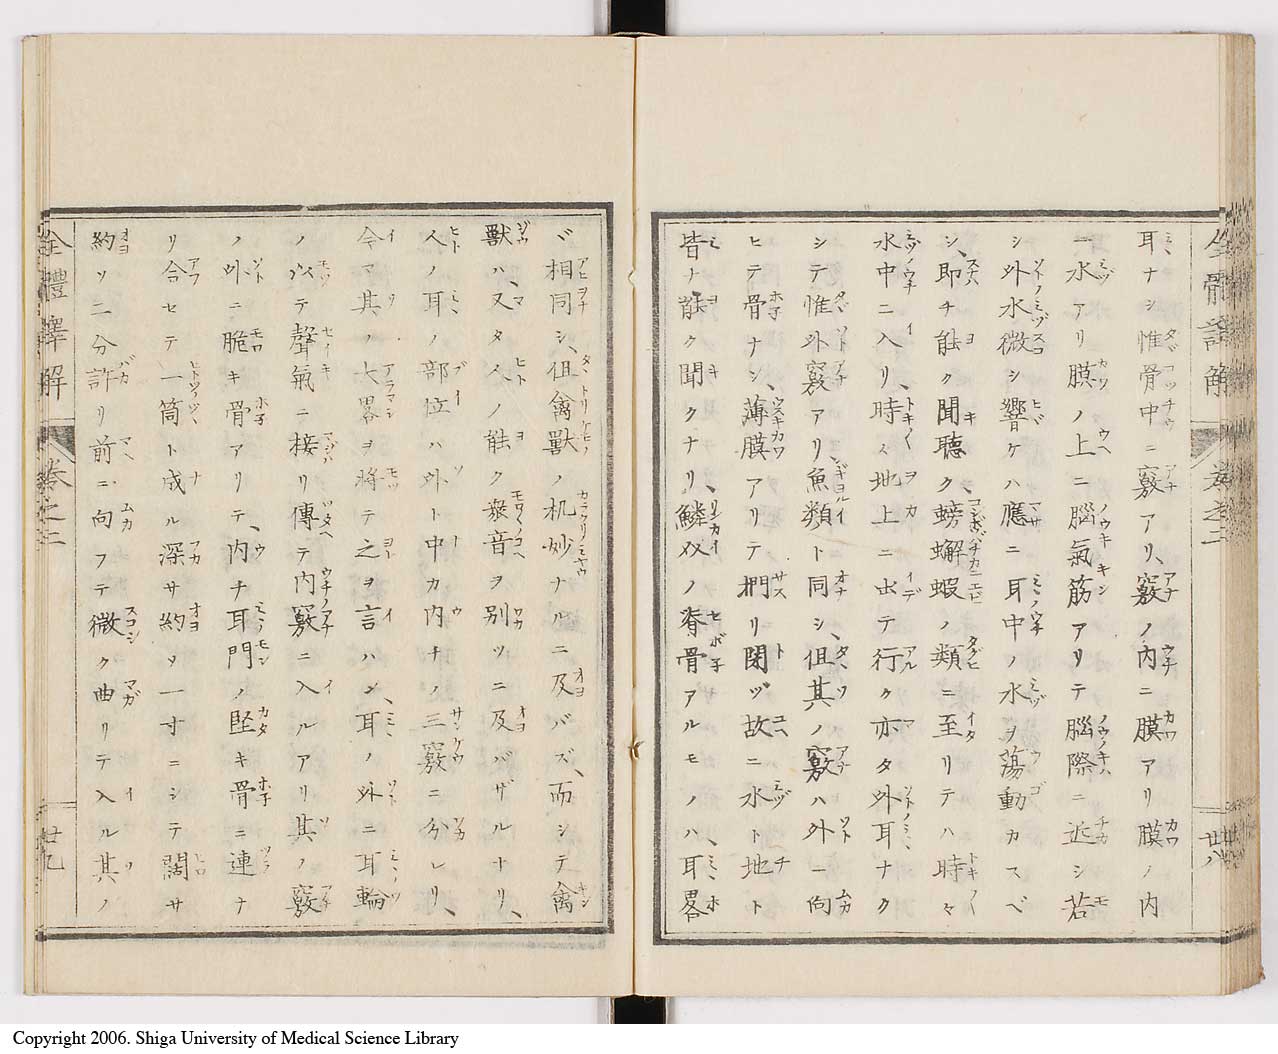 耳ナシ惟骨中ニ竅アリ、竅ノ内ニ膜アリ膜ノ内
一水アリ膜ノ上ニ腦氣筋アリテ腦際ニ近シ若
シ外水微シ響ケハ應ニ耳中ノ水ヲ蕩動カスベ
シ、即チ能ク聞聽ク、螃蠏蝦ノ類ニ至リテハ時々
水中ニ入リ、時々地上ニ出テ行ク亦タ外耳ナク
シテ惟外竅アリ魚類ト同シ、但其ノ竅ハ外一向
ヒテ骨ナシ、薄膜アリテ捫リ閉ヅ故ニ水ト地ト
皆ナ能ク聞クナリ、鱗介ノ脊骨アルモノハ、耳畧
ボ相同シ、但禽獸ノ机妙ナルニ及バズ、而シテ禽
獸ハ、又タ人ノ能ク衆音ヲ別ツニ及バザルナリ、
人ノ耳ノ部位ハ外ト中カ内チノ三竅ニ分レリ、
今マ其ノ大畧ヲ将テ之ヲ言ハン、耳ノ外ニ耳輪
ノ以テ聲氣ニ接リ傳テ内竅ニ入ルアリ其ノ竅
ノ外ニ脆キ骨アリテ、内チ耳門ノ堅キ骨ニ連ナ
リ合セテ一筒ト成ル深サ約ソ一寸ニシテ濶サ
約ソ二分許リ前ニ向フテ微ク曲リテ入ル其ノ
全體譯解 卷之二 廿九
Copyright 2006. Shiga University of Medical Science Library